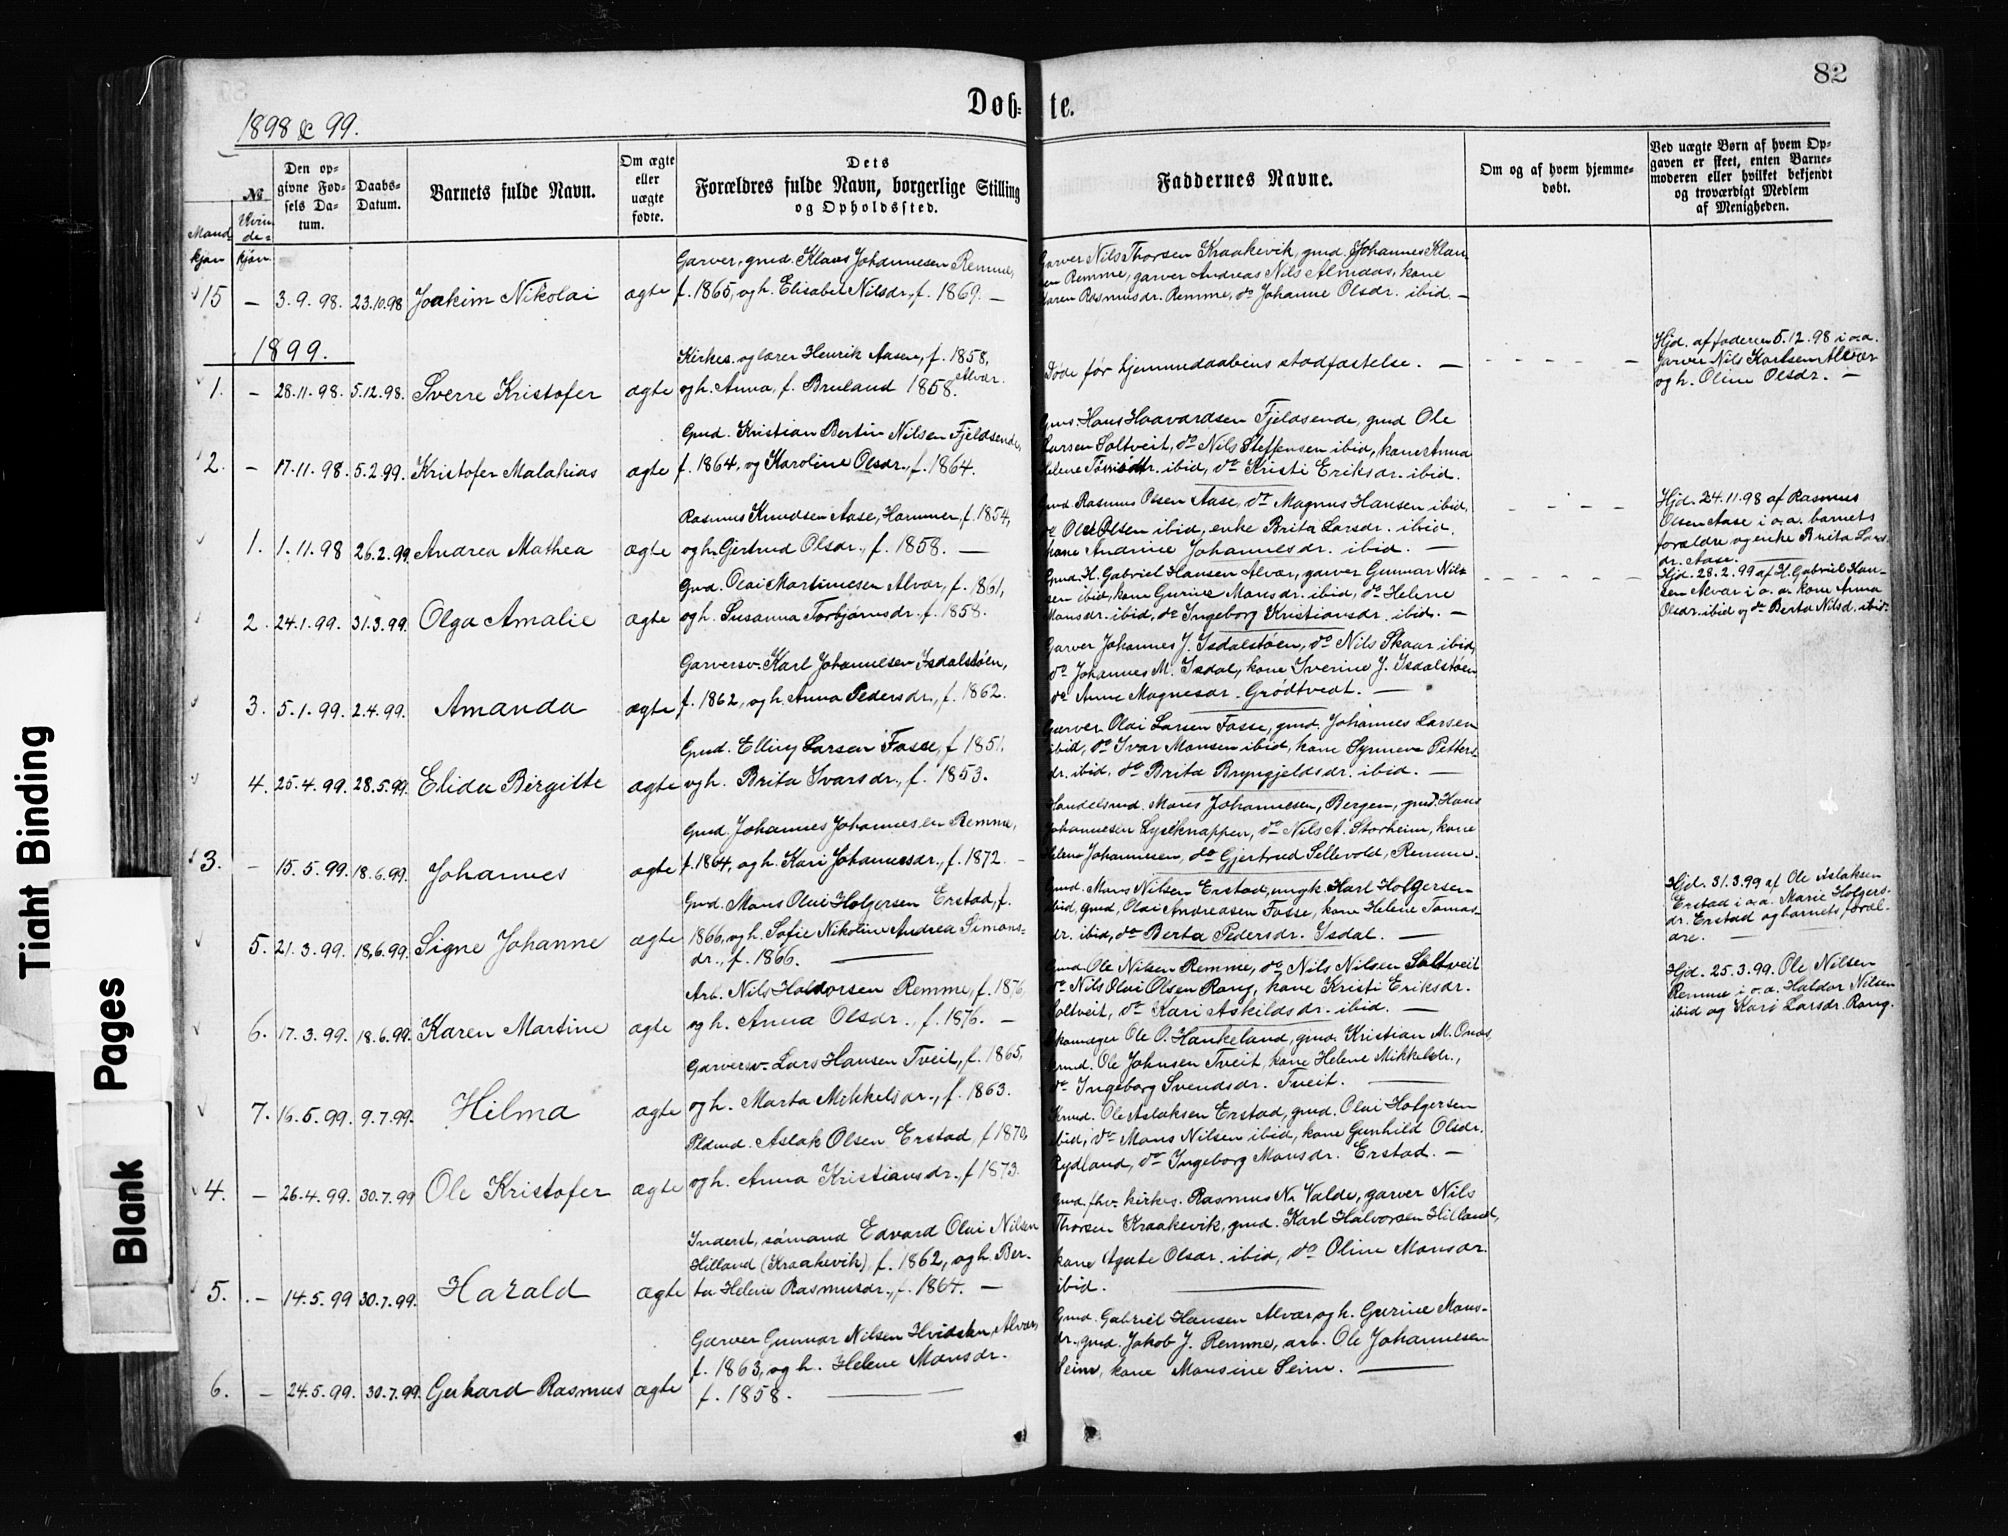 82
Døb-te.
1898 & 99.
№
Mand-kjøn
Kvin-de-kjøn
Den op-givne Fød-sels Da-tum.
Daabs-Datum.
Barnets fulde Navn.
Om ægte eller uægte fødte.
Dets Forældres fulde Navn, borgerlige Stilling og Opholdssted.
Faddernes Navne.
Om og af hvem hjemme-døbt.
Ved uægte Børn af hvem Op-gaven er skeet, enten Barne-moderen eller hvilket bekjendt og troværdigt Medlem af Menigheden.
15 – 3.9.98. 23.10.98 Joakim Nikolai ægte
Garver, gmd. Klaus Johannesen Remme,
f. 1865, og h. Elisabet Nilsdr., f. 1869. –
Garver Nils Thorsen Kraakevik, gmd. Johannes Klau-
sen Remme, garver Andreas Nils Almaas, kone
Karen Rasmusdr. Remme, do Johanne Olsdr. ibid. –
1899.
1. – 28.11.98. 5.12.98. Sverre Kristofer ægte
Kirkes. og lærer Henrik Aasen, f. 1858,
og h. Anna, f. Bruland 1858. Alvær.
Døde før hjemmedaabens stadfæstelse. –
Hjd. af faderen 5.12.98 i o.a.
garver Nils Karlsen Alvær
og h. Oline Olsdr. –
2. – 17.11.98. 5.2.99. Kristofer Malakias ægte
Gmd. Kristian Bertin Nilsen Fjeldsende,
f. 1864, og Karoline Olsdr., f. 1864.
Gms. Hans Haavardsen Fjeldsende, gmd Ole
Larsen Soltveit, do Nils Steffensen ibid, kone Anna
Helene ibid, do Kristi Eriksdr. ibid.
1. 1.11.98 26.2.99 Andrea Mathea ægte
Rasmus Knudsen Aase, Hammer, f. 1854,
og h. Gjertrud Olsdr., f. 1858. –
Gmd. Rasmus Olsen Aase, do Magnus Hansen ibid,
do Ole Olsen ibid, enke Brita Larsdr. ibid.
kone Andrine Johannesdr. ibid. –
Hjd. 24.11.98 af Rasmus
Olsen Aase i o.a. barnets
forældre og enke Brita Lars-
dr. Aase.
2. 24.1.99. 31.3.99. Olga Amalie ægte
Gmd. Olai Martinesen Alvær, f. 1861,
og h. Susanna Torbjørnsdr., f. 1858.
Gmd. H. Gabriel Hansen Alvær, garver Gunnar Nil-
sen ibid, kone Gurine Monsdr. ibid, do Helene
Monsdr. ibid, do Ingeborg Kristiansdr. ibid. –
Hjd. 28.2.99 af H. Gabriel Han-
sen Alvær i o.a. kone Anna
Olsdr. ibid og do Berta Nilsd. ibid.
3. 5.1.99. 2.4.99. Amanda ægte
Garversv. Karl Johannesen Isdalstøen,
f. 1862, og h. Anna Pedersdr., f. 1862.
Garver Johannes J. Isdalstøen, do Nils Skaar ibid,
do Johannes M. Isdal, kone Sverine J. Isdalstøen
do Anne Magnesdr. Grødtvedt. –
4. 25.4.99. 28.5.99. Elida Birgitte ægte
Gmd. Elling Larsen Fosse, f 1851.
og h. Brita Ivarsdr., f. 1853.
Garver Olai Larsen Fosse, gmd. Johannes Larsen
ibid, do Ivar Monsen ibid, kone Synneva Petters-
dr. ibid, do Brita Bryngjeldsdr. ibid. –
3. – 15.5.99. 18.6.99. Johannes ægte
Gmd Johannes Johannesen Remme,
f. 1864, og h. Kari Johannesdr., f. 1872. –
Handelsmd. Mons Johannesen, Bergen, gmd. Hans
Johannesen Lyseknappen, do Nils A. Storheim, kone
Helene Johannesen, do Gjertrud Sellevold, Remme.
5. 21.3.99. 18.6.99. Signe Johanne ægte
Gmd. Mons Olai Holgersen Erstad, f.
1866, og h. Sofie Nikoline Andrea Simons-
dr., f. 1866.
Gmd. Mons Nilsen Erstad, ungk. Karl Holgersen
ibid, gmd, Olai Andreasen Fosse, kone Helene Tomas-
dr. ibid, do Berta Pedersdr. Isdal. –
Hjd. 31.3.99 af Ole Aslaksen
Erstad i o.a. Marie Holgers-
dr. Erstad og barnets foræl-
dre.
6. 17.3.99. 18.6.99. Karen Martine ægte
Arb. Nils Haldorsen Remme, f. 1876,
og h. Anna Olsdr., f. 1876. –
Gmd. Ole Nilsen Remme, do Nils Nilsen Soltveit
do Nils Olai Olsen Rong, kone Kristi Eriksdr.
Soltveit, do Kari Askildsdr. ibid.
Hjd. 25.3.99. Ole Nilsen
Remme i o.a. Haldor Nilsen
ibid og Kari Larsdr. Rong.
7. 16.5.99. 9.7.99. Hilma ægte
Garversv. Lars Hansen Tveit, f. 1865,
og h. Marta Mikkelsdr., f. 1863.
Skomager Ole O. Hankeland, gmd. Kristian M. Onas,
gmd. Ole Johnsen Tveit, kone Helene Mikkelsdr.,
do Ingeborg Svendsdr. Tveit.
4. – 26.4.99. 30.7.99 Ole Kristofer ægte
Pldsmd. Aslak Olsen Erstad, f 1870,
og h. Anna Kristiansdr., f 1873.
Ole Aslaksen Erstad, gmd. Olai Holgersen
ibid, do Mons Nilsen ibid, kone Gunhild Olsdr.
Rydland, do Ingeborg Monsdr. Erstad. –
5. – 14.5.99 30.7.99. Harald ægte
Inderst, sømand Edvard Olai Nilsen
Hilland (Kraakevik), f. 1862, og h. Ber-
ta Helene Rasmusdr., f. 1864. –
Gmd. fhv. kirkes. Rasmus N. Valde, garver Nils
Thorsen Kraakevik, gmd. Karl Halvorsen Hilland,
kone Agate Olsdr. ibid, do Oline Monsdr.
ibid.
6. – 24.5.99. 30.7.99. Gerhard Rasmus ægte
Garver Gunnar Nilsen Hvidsten, Alvær,
f. 1863, og h. Helene Monsdr.
f. 1858.
Gmd. Gabriel Hansen Alvær, og h. Gurine Mons-
dr., gmd. Jakob J. Remme, arb. Ole Johannesen
Seim, kone Monsine Seim.
Tight Binding
Blank Pages